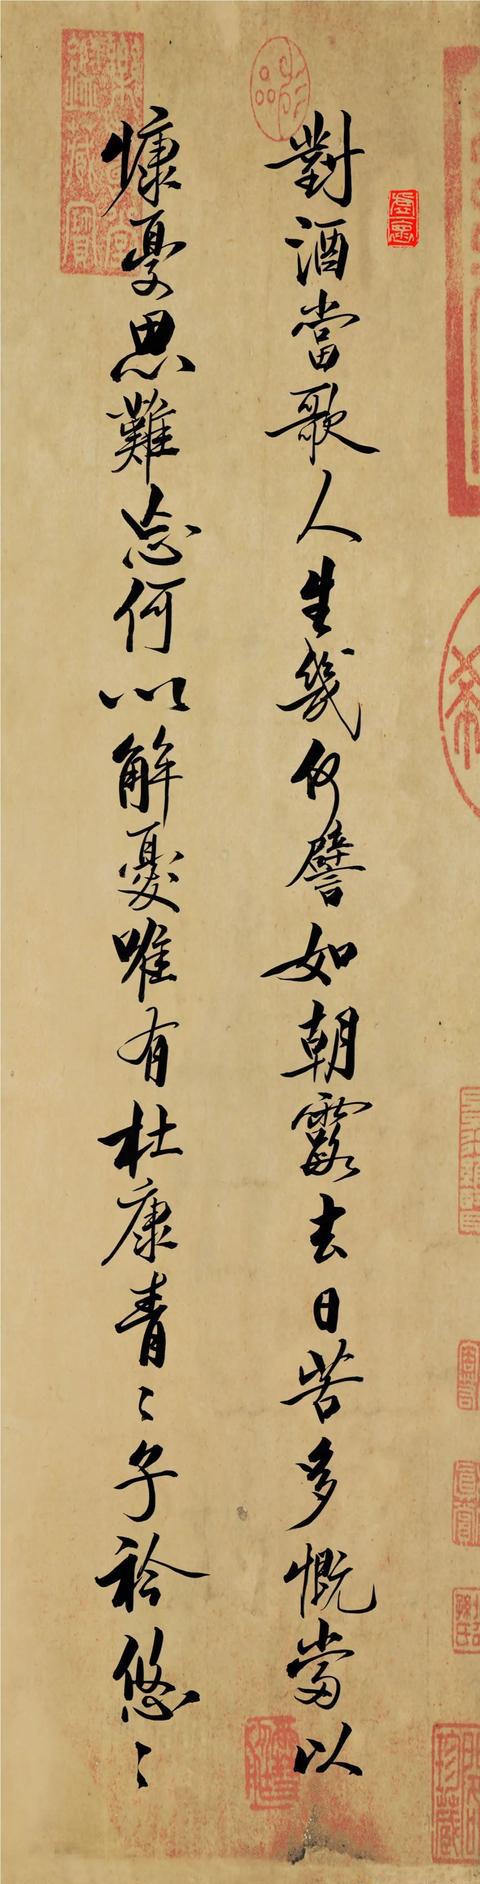 對酒當歌人生幾何譬如朝露去日苦多慨當以
慷憂思難忘何以解憂唯有杜康青〻子衿悠〻
珍藏